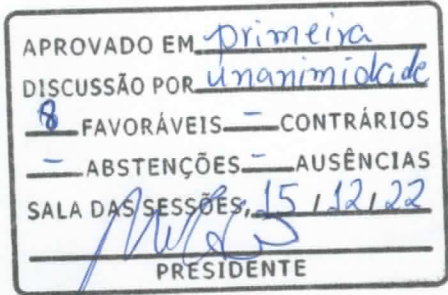 APROVADO EM primeira
DISCUSSÃO POR unanimidade
8 FAVORÁVEIS - CONTRÁRIOS
- ABSTENÇÕES - AUSÊNCIAS
SALA DAS SESSÕES, 15 / 12 / 22
PRESIDENTE